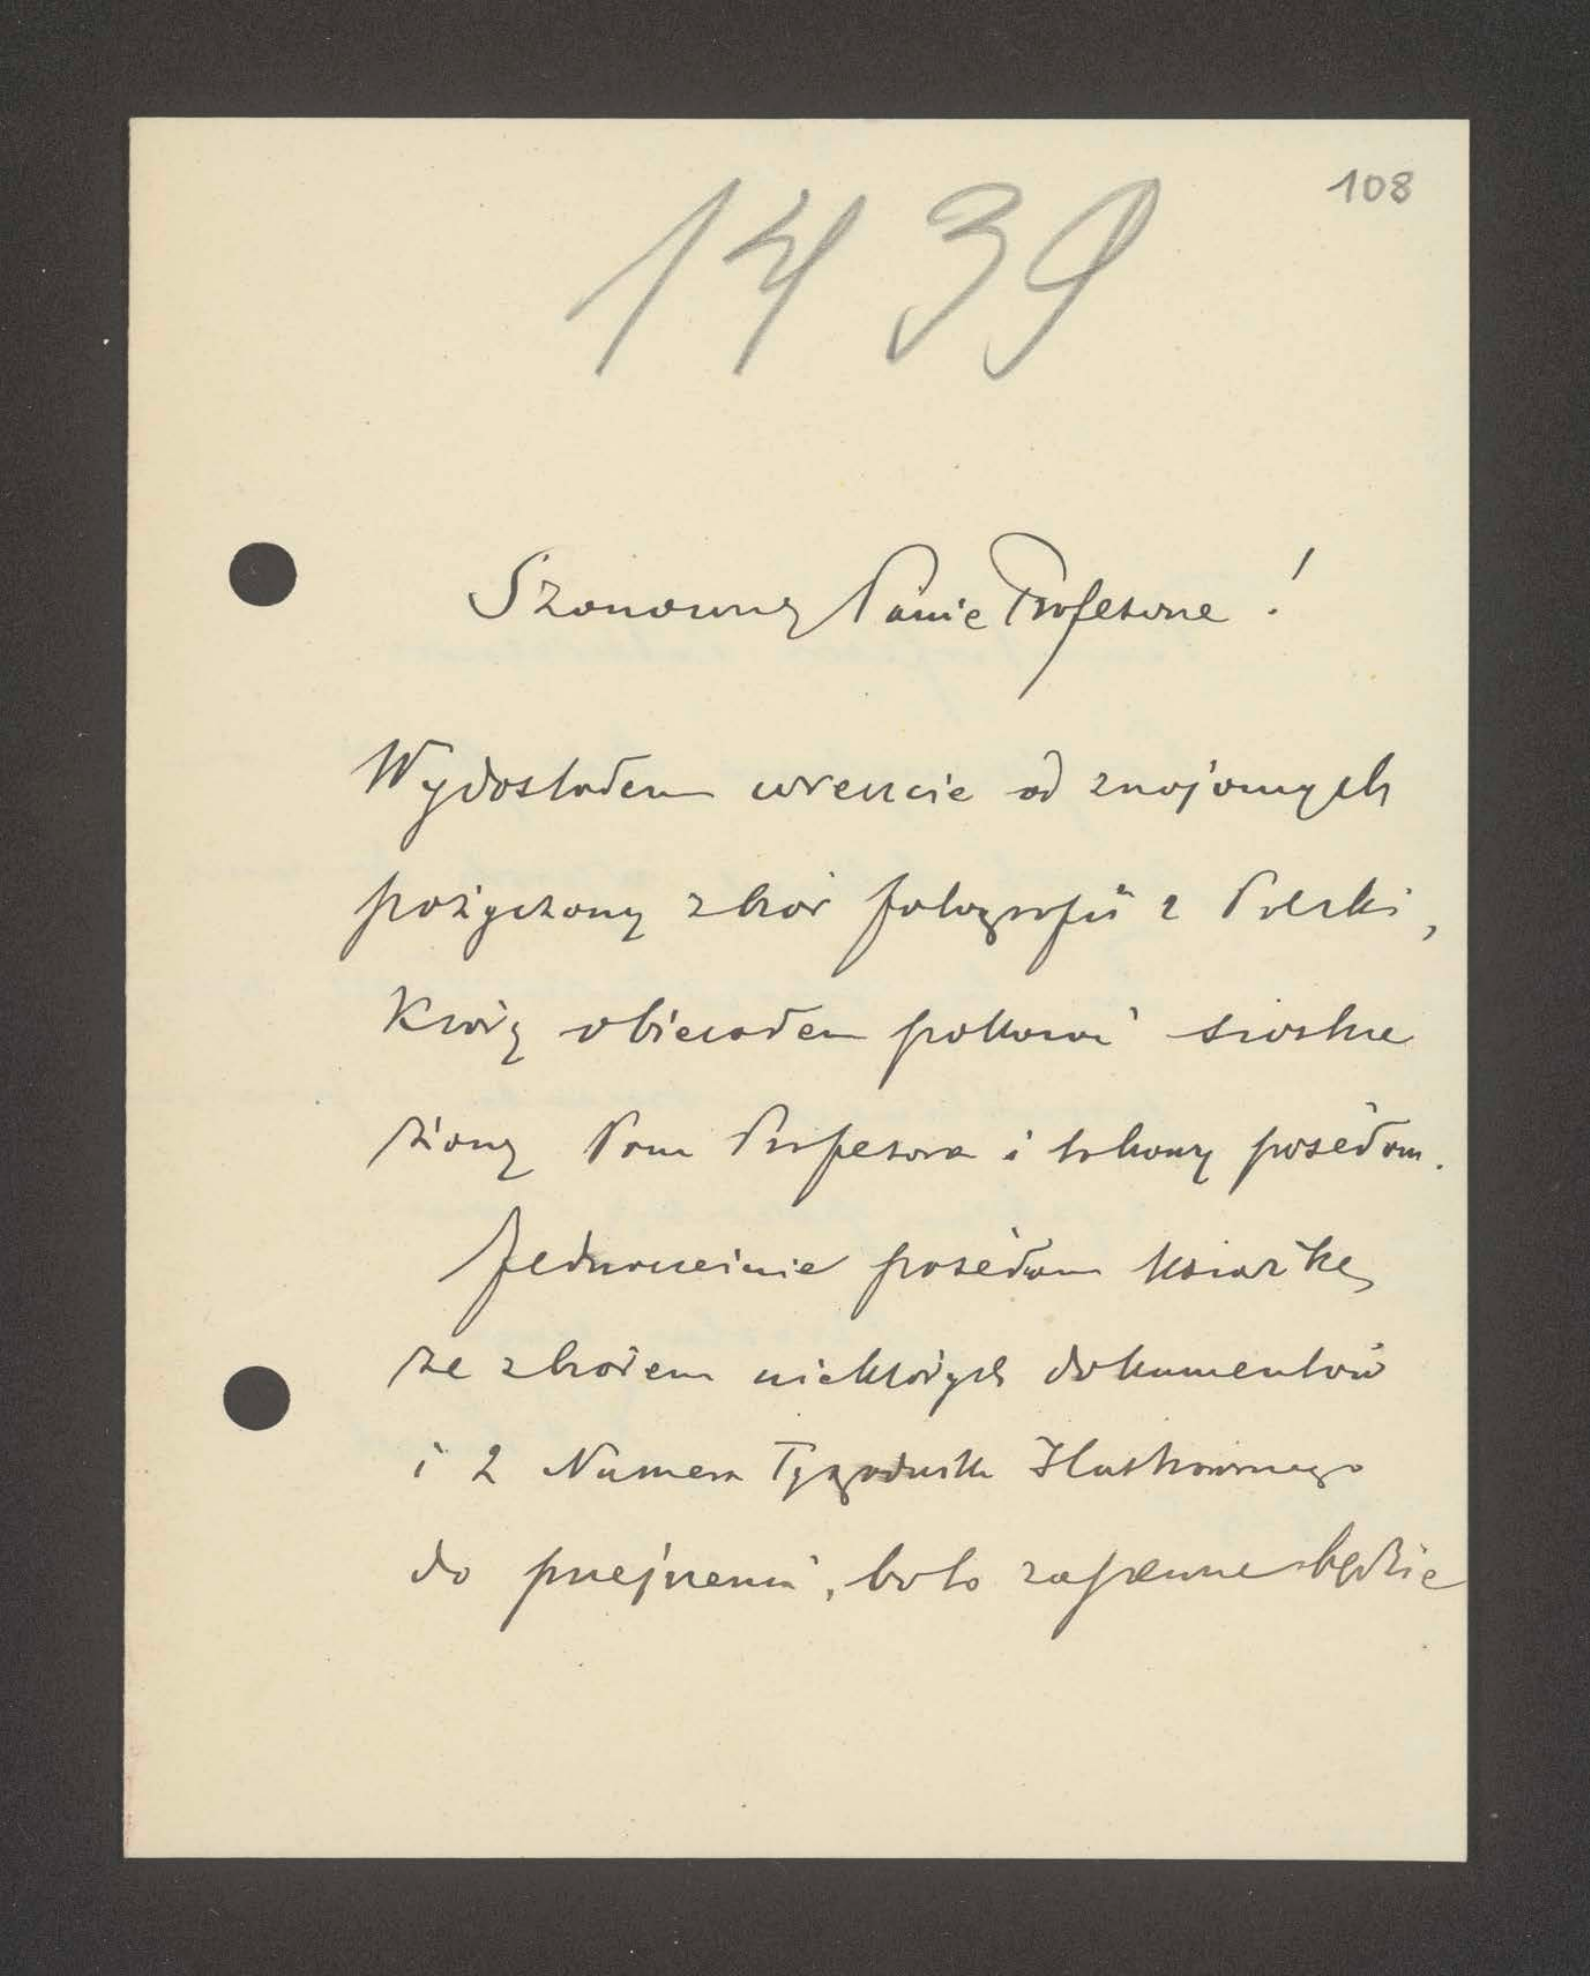 108
1439
Szanowny Panie Profesorze!
Wydostałem wreszcie od znajomych
pożyczony zbiór fotografii z Polski,
który obiecałem pokazać siostrze
żony Pana Profesora i takowy posełam.
Jednocześnie posełam książkę
ze zbiorem niektórych dokumentów
i 2 Numera Tygodnika Ilustrowanego
do przejrzenia, bo to zapewne będzie